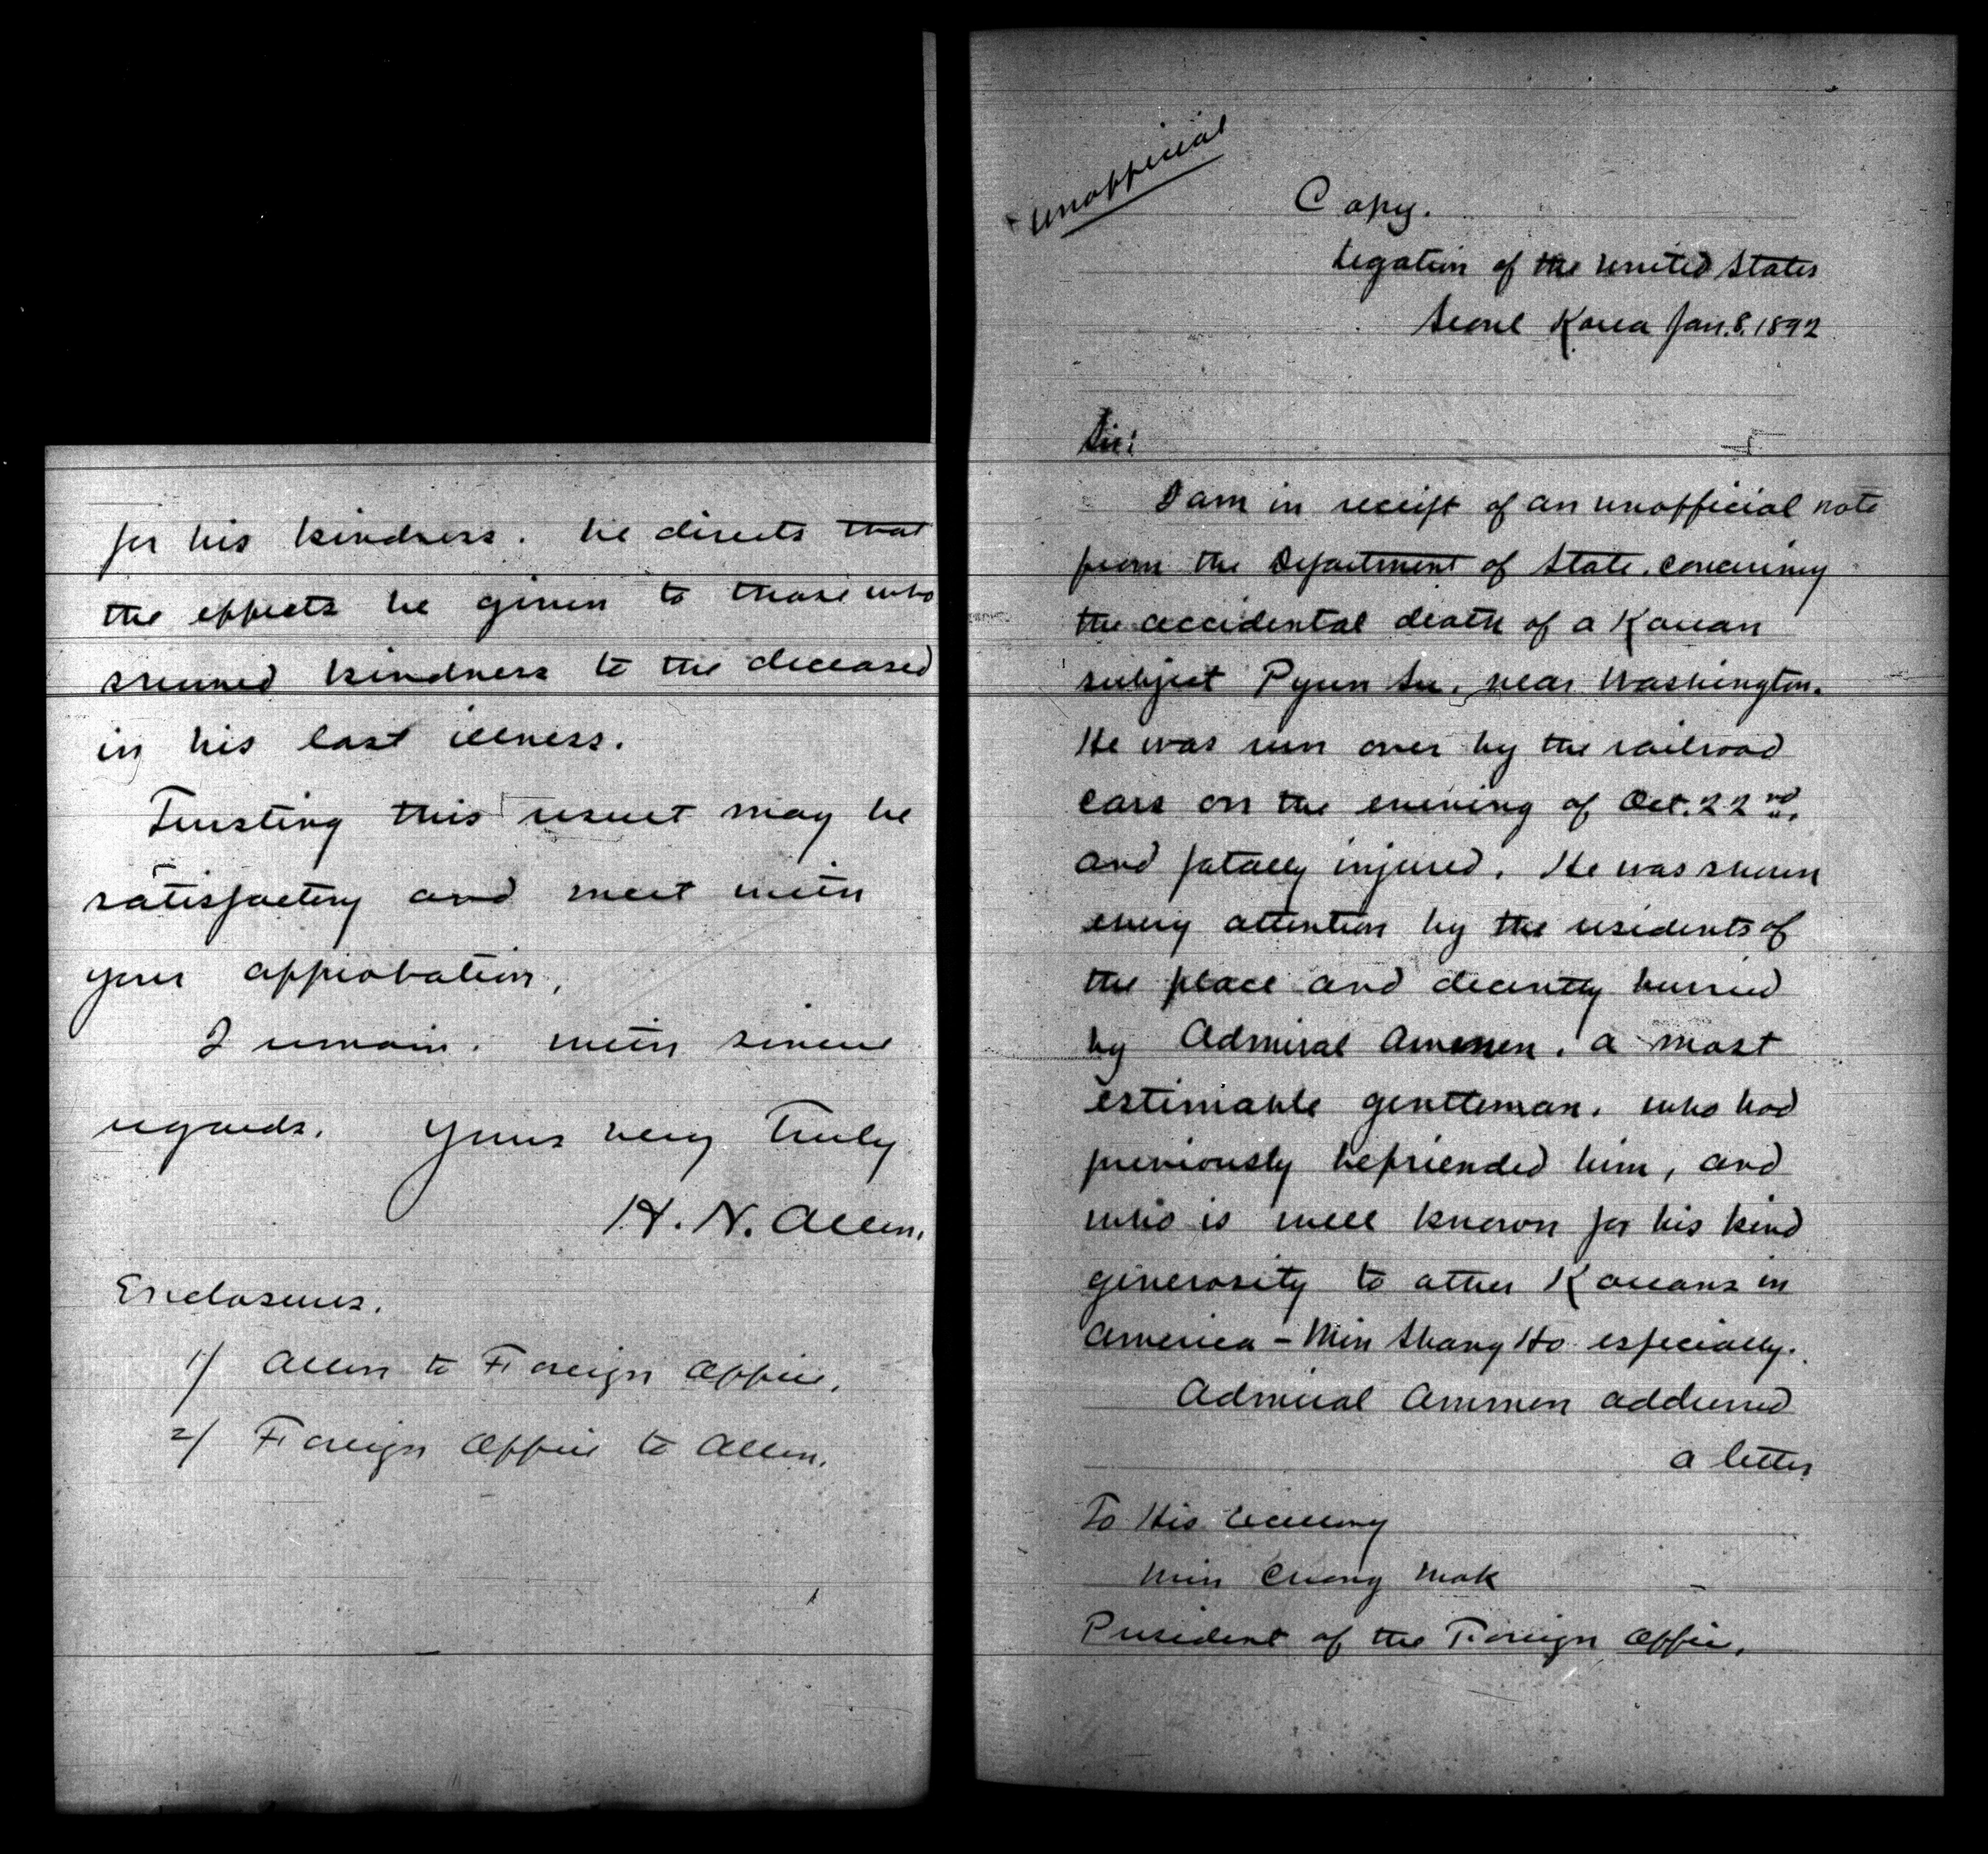 for his kindness. He directs that
the effects be given to those who
showed kindness to the deceased
in his last illness.
Trusting this result may be
satisfactory and meet with
your approbation,
I remain, with sincere
regards, Yours very Truly
H. N. Allen.
Enclosures.
1/ Allen to Foreign Office.
2/ Foreign Office to Allen.
Unofficial
Copy.
Legation of the United States
Seoul Korea Jan. 8. 1892
Sir:
I am in receipt of an unofficial note
from the Department of State, concerning
the accidental death of a Korean
subject Pyun Su, near Washington.
He was run over by the railroad
cars on the evening of Oct. 22nd,
and fatally injured. He was shown
every attention by the residents of
the place and decently burried
by Admiral Ammen, a most
estimable gentleman, who had
previously befriended him, and
who is well known for his kind
generosity to other Koreans in
America - Min Shang Ho especially.
Admiral Ammen addressed
a letter
To His Excellency
Min Chong Mok
President of the Foreign Office.